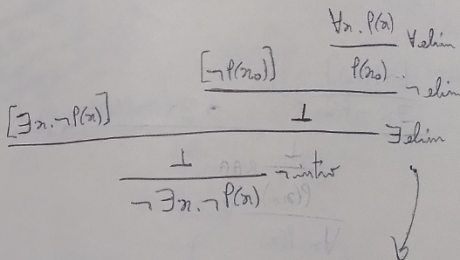 ∀x. P(x)
∀elim
[¬P(x₀)] P(x₀)
¬elim
[∃x.¬P(x)] ⊥
∃elim
⊥
¬intro
¬∃x.¬P(x)